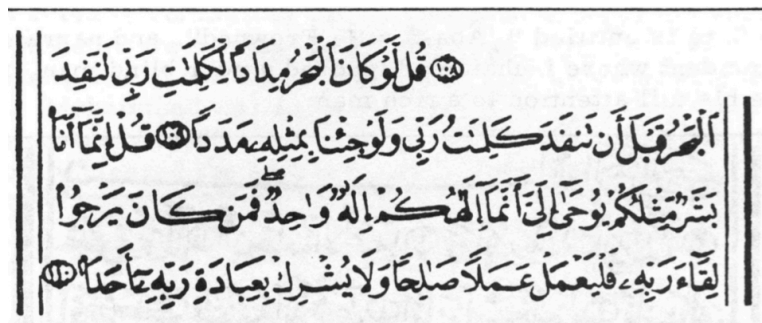 ﴿١٠٨﴾ قُل لَّوْ كَانَ ٱلْبَحْرُ مِدَادًا لِّكَلِمَٰتِ رَبِّى لَنَفِدَ
ٱلْبَحْرُ قَبْلَ أَن تَنفَدَ كَلِمَٰتُ رَبِّى وَلَوْ جِئْنَا بِمِثْلِهِۦ مَدَدًا ﴿١٠٩﴾ قُلْ إِنَّمَآ أَنَا۠
بَشَرٌ مِّثْلُكُمْ يُوحَىٰٓ إِلَىَّ أَنَّمَآ إِلَٰهُكُمْ إِلَٰهٌ وَٰحِدٌ ۖ فَمَن كَانَ يَرْجُوا۟
لِقَآءَ رَبِّهِۦ فَلْيَعْمَلْ عَمَلًا صَٰلِحًا وَلَا يُشْرِكْ بِعِبَادَةِ رَبِّهِۦٓ أَحَدًۢا ﴿١١٠﴾